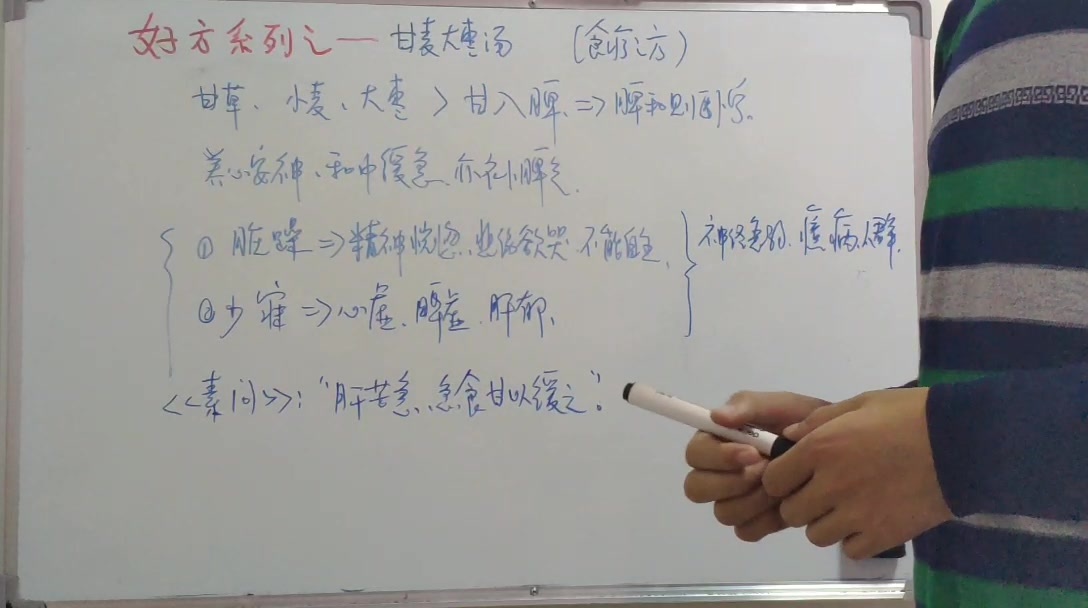 好方系列之一 甘麦大枣汤 (食疗之方)
甘草、小麦、大枣 > 甘入脾 => 脾和则
养心安神、和中缓急、亦补脾气.
① 脏躁 => 精神恍惚、悲伤欲哭、不能自主、
神经衰弱、癔病人群.
② 少寐 => 心虚、脾虚、肝郁、
<<素问>>: "肝苦急、急食甘以缓之".